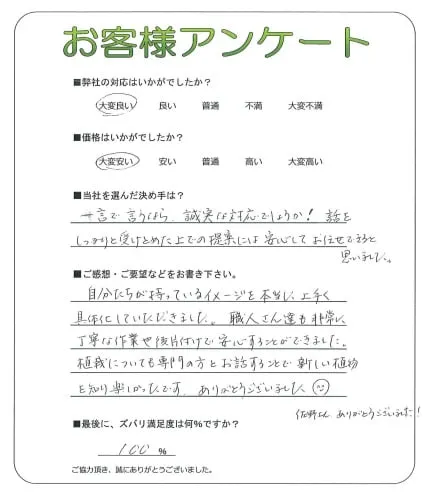 お客様アンケート
■弊社の対応はいかがでしたか？
大変良い 良い 普通 不満 大変不満
■価格はいかがでしたか？
大変安い 安い 普通 高い 大変高い
■当社を選んだ決め手は？
一言で言うなら、誠実な対応でしょうか！ 話を
しっかりと受けとめた上での提案には安心してお任せできると
思いました。
■ご感想・ご要望などをお書き下さい。
自分たちが持っているイメージを本当に上手く
具体化していただきました。職人さん達も非常に
丁寧な作業や後片付けで安心することができました。
植栽についても専門の方とお話することで新しい植物
を知り楽しかったです。ありがとうございました
佐野さん、ありがとうございました！
■最後に、ズバリ満足度は何％ですか？
100 ％
ご協力頂き、誠にありがとうございました。